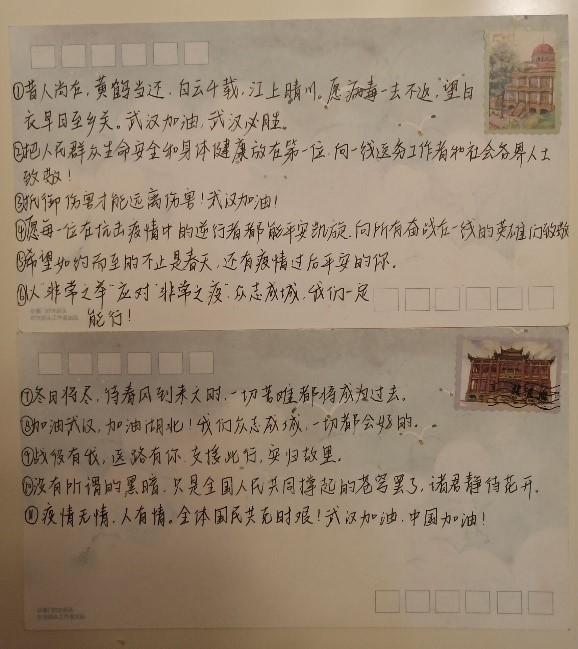 ①昔人尚在，黄鹤当还，白云千载，江上晴川。愿病毒一去不返，望白
衣早日至乡关。武汉加油，武汉必胜。
②把人民群众生命安全和身体健康放在第一位，向一线医务工作者和社会各界人士
致敬！
③抵御伤害才能远离伤害！武汉加油！
④愿每一位在抗击疫情中的逆行者都能平安凯旋，向所有奋战在一线的英雄们致敬
⑤希望如约而至的不止是春天，还有疫情过后平安的你。
⑥以“非常之举”应对“非常之疫”众志成城，我们一定
能行！
⑦冬日将尽，待春风到来之时，一切苦难都将成为过去。
⑧加油武汉，加油湖北！我们众志成城，一切都会好的。
⑨战役有我，医路有你，支援此行，安归故里。
⑩没有所谓的黑暗，只是全国人民共同撑起的苍穹罢了，诸君静待花开。
⑪疫情无情，人有情。全体国民共克时艰！武汉加油，中国加油！